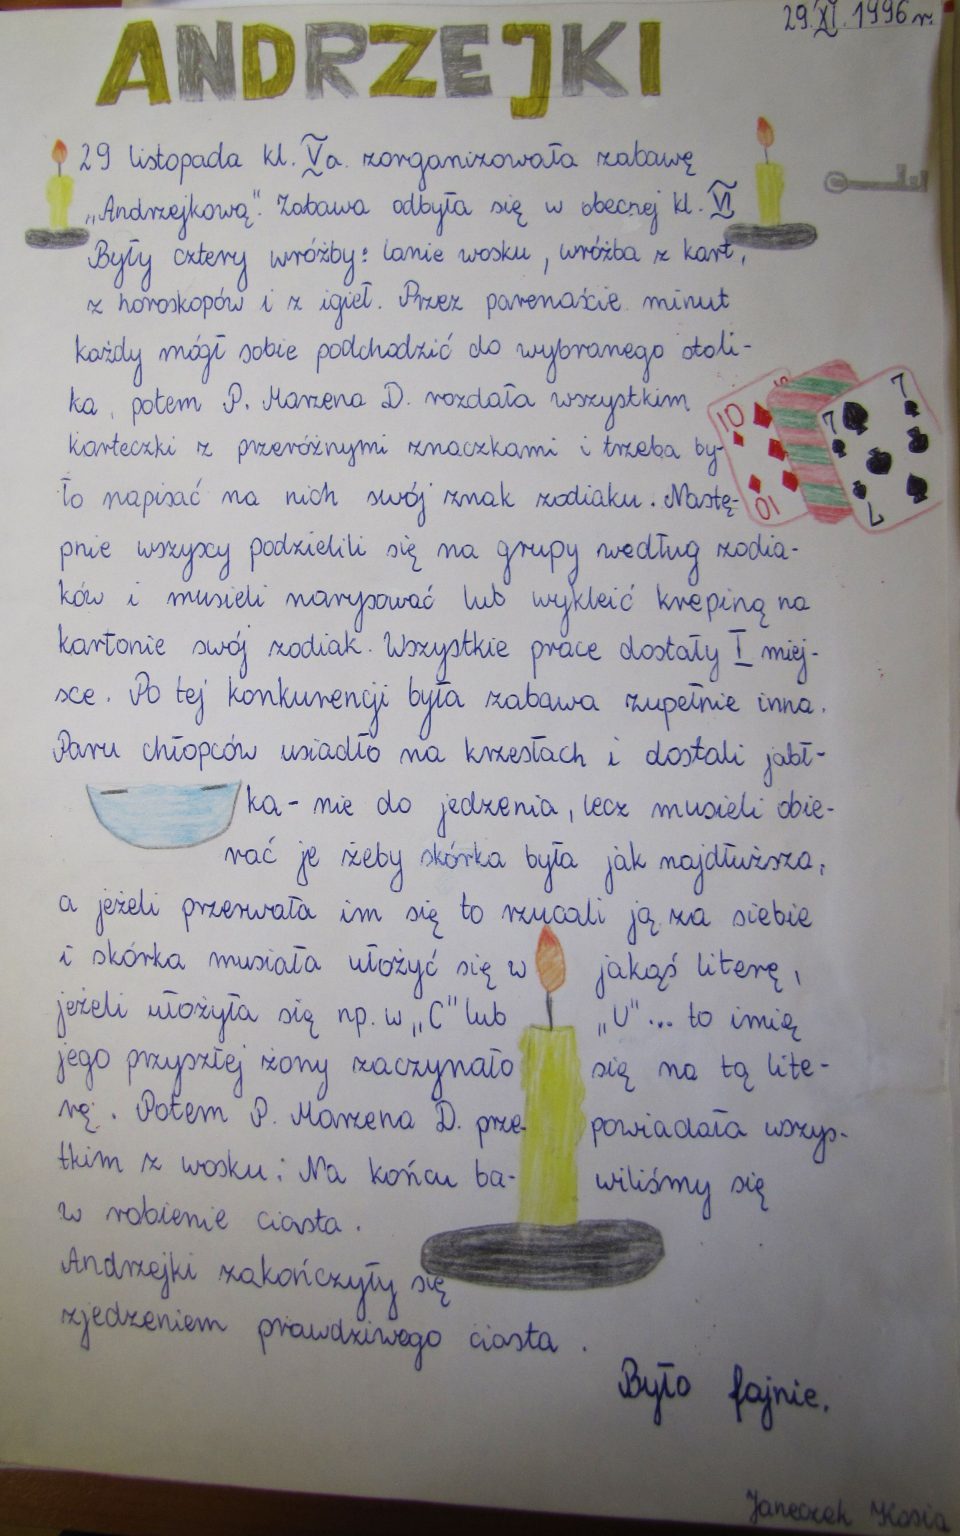 29.XI.1996 r.
ANDRZEJKI
29 listopada kl. Va zorganizowała zabawę
„Andrzejkową". Zabawa odbyła się w obecnej kl. VI
Były cztery wróżby: lanie wosku, wróżba z kart,
z horoskopów i z igieł. Przez parenaście minut
każdy mógł sobie podchodzić do wybranego stoli-
ka, potem P. Marzena D. rozdała wszystkim
karteczki z przeróżnymi znaczkami i trzeba by-
ło napisać na nich swój znak zodiaku. Nastę-
pnie wszyscy podzielili się na grupy według zodia-
ków i musieli narysować lub wykleić krepiną na
kartonie swój zodiak. Wszystkie prace dostały I miej-
sce. Po tej konkurencji była zabawa zupełnie inna.
Paru chłopców usiadło na krzesłach i dostali jabł-
ka - nie do jedzenia, lecz musieli obie-
rać je żeby skórka była jak najdłuższa,
a jeżeli przerwała im się to rzucali ją za siebie
i skórka musiała ułożyć się w jakąś literę,
jeżeli ułożyła się np. w „C" lub „U"... to imię
jego przyszłej żony zaczynało się na tą lite-
rę. Potem P. Marzena D. prze- powiadała wszys-
tkim z wosku; Na końcu ba- wiliśmy się
w robienie ciasta.
Andrzejki zakończyły się
zjedzeniem prawdziwego ciasta.
Było fajnie.
10
10
7
7
7
Janeczek Kasia